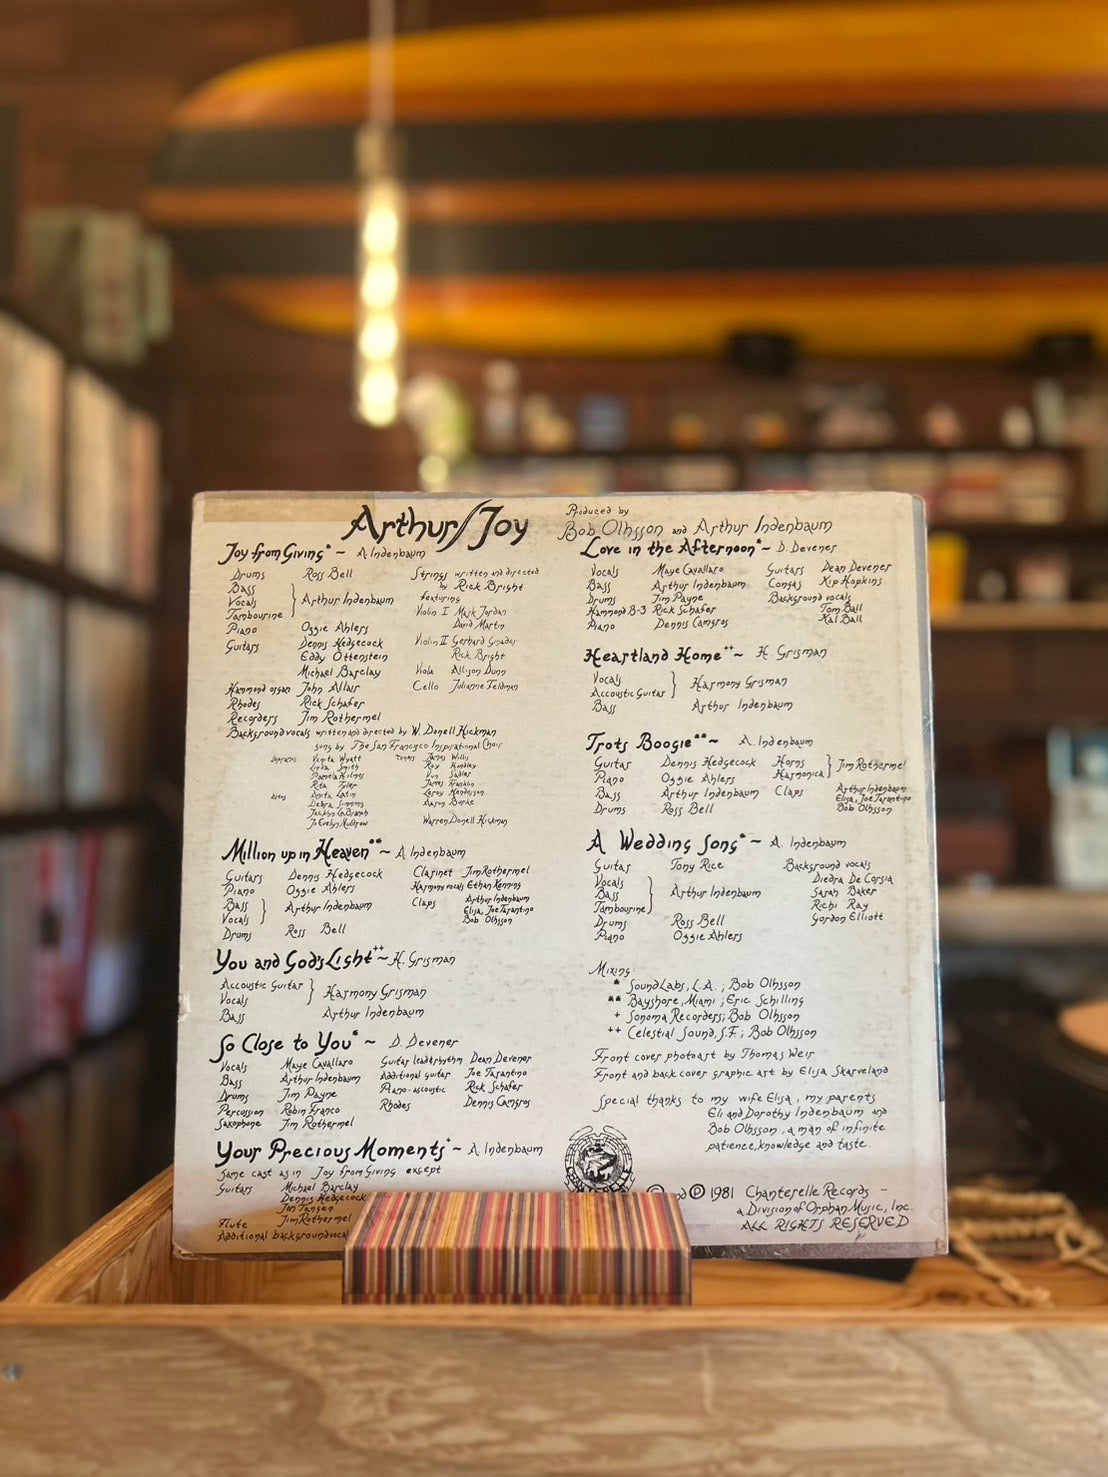 Arthur/Joy
Joy from Giving* ~ A. Indenbaum
Drums Ross Bell
Bass
Vocals } Arthur Indenbaum
Tambourine
Piano Oggie Ahlers
Guitars Dennis Hedgecock
Eddy Ottenstein
Michael Barclay
Hammond organ John Allair
Rhodes Rick Schafer
Recorders Jim Rothermel
Strings written and directed
by Rick Bright
featuring
Violin I Mark Jordan
David Martin
Violin II Gerhard
Rick Bright
Viola Allison Dunn
Cello Julianne Feldman
Background vocals written and directed by W. Donell Hickman
sung by The San Francisco Inspirational Choir
Sopranos Venita Wyatt
Linda Smith
Pamela Holmes
Rita Tyler
Altos Anita Latin
Debra Simmons
Jacklyn LaBranch
JoEvelyn Muldrow
Tenors James Willis
Roy Hundley
Van Sadler
James Franklin
Leroy Henderson
Aaron Burke
Warren Donell Hickman
Million up in Heaven** ~ A. Indenbaum
Guitars Dennis Hedgecock
Piano Oggie Ahlers
Bass
Vocals } Arthur Indenbaum
Drums Ross Bell
Clarinet Jim Rothermel
Harmony vocals Ethan Kenning
Claps Arthur Indenbaum
Elisa, Joe Tarantino
Bob Olhsson
You and God's Light++ ~ H. Grisman
Accoustic Guitar
Vocals } Harmony Grisman
Bass Arthur Indenbaum
So Close to You* ~ D. Devener
Vocals Maye Cavallaro
Bass Arthur Indenbaum
Drums Jim Payne
Percussion Robin Franco
Saxophone Jim Rothermel
Guitar lead&rhythm Dean Devener
Additional guitar Joe Tarantino
Piano-accoustic Rick Schafer
Rhodes Dennis Camgros
Your Precious Moments+ ~ A. Indenbaum
Same cast as in Joy from Giving except
Guitars Michael Barclay
Dennis Hedgecock
Jan Tangen
Flute Jim Rothermel
Additional background vocal
Produced by
Bob Olhsson and Arthur Indenbaum
Love in the Afternoon* ~ D. Devener
Vocals Maye Cavallaro
Bass Arthur Indenbaum
Drums Jim Payne
Hammond B-3 Rick Schafer
Piano Dennis Camgros
Guitars Dean Devener
Congas Kip Hopkins
Background vocals
Tom Ball
Kal Ball
Heartland Home++ ~ H. Grisman
Vocals
Accoustic Guitar } Harmony Grisman
Bass Arthur Indenbaum
Trots Boogie** ~ A. Indenbaum
Guitar Dennis Hedgecock
Piano Oggie Ahlers
Bass Arthur Indenbaum
Drums Ross Bell
Horns
Harmonica } Jim Rothermel
Claps Arthur Indenbaum
Elisa, Joe Tarantino
Bob Olhsson
A Wedding Song* ~ A. Indenbaum
Guitar Tony Rice
Vocals
Bass } Arthur Indenbaum
Tambourine
Drums Ross Bell
Piano Oggie Ahlers
Background vocals
Diedra De Corsia
Sarah Baker
Richi Ray
Gordon Elliott
Mixing:
* Sound Labs, L.A.; Bob Olhsson
** Bayshore, Miami; Eric Schilling
+ Sonoma Recorders; Bob Olhsson
++ Celestial Sound, S.F.; Bob Olhsson
Front cover photoart by Thomas Weir
Front and back cover graphic art by Elisa Skarveland
Special thanks to my wife Elisa, my parents
Eli and Dorothy Indenbaum and
Bob Olhsson, a man of infinite
patience, knowledge and taste.
CHANTERELLE
© and ℗ 1981 Chanterelle Records -
a Division of Orphan Music, Inc.
ALL RIGHTS RESERVED